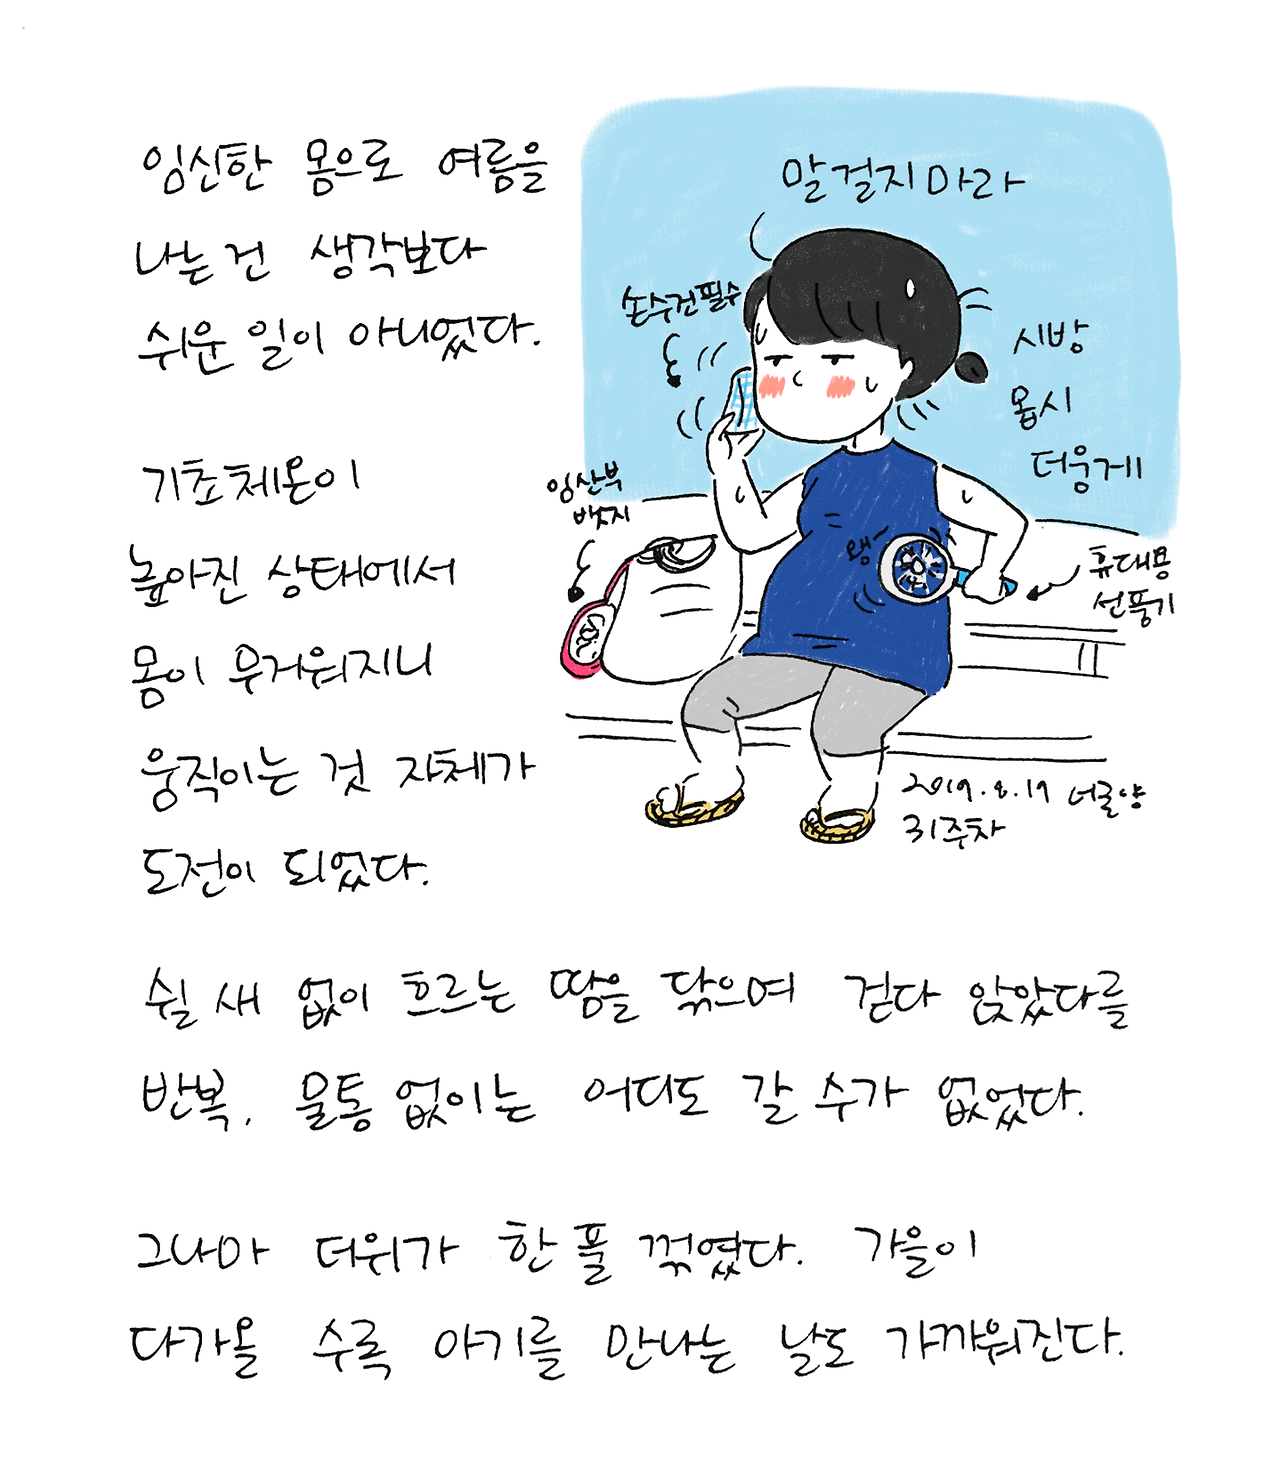 임신한 몸으로 여름을
나는 건 생각보다
쉬운 일이 아니었다.
기초체온이
높아진 상태에서
몸이 무거워지니
움직이는 것 자체가
도전이 되었다.
말걸지마라
손수건필수
시방
몹시
더웅게
임산부
뱃지
왱
휴대용
선풍기
2019.8.19 너굴양
31주차
쉴 새 없이 흐르는 땀을 닦으며 걷다 앉았다를
반복. 물통 없이는 어디도 갈 수가 없었다.
그나마 더위가 한 풀 꺾였다. 가을이
다가올 수록 아기를 만나는 날도 가까워진다.